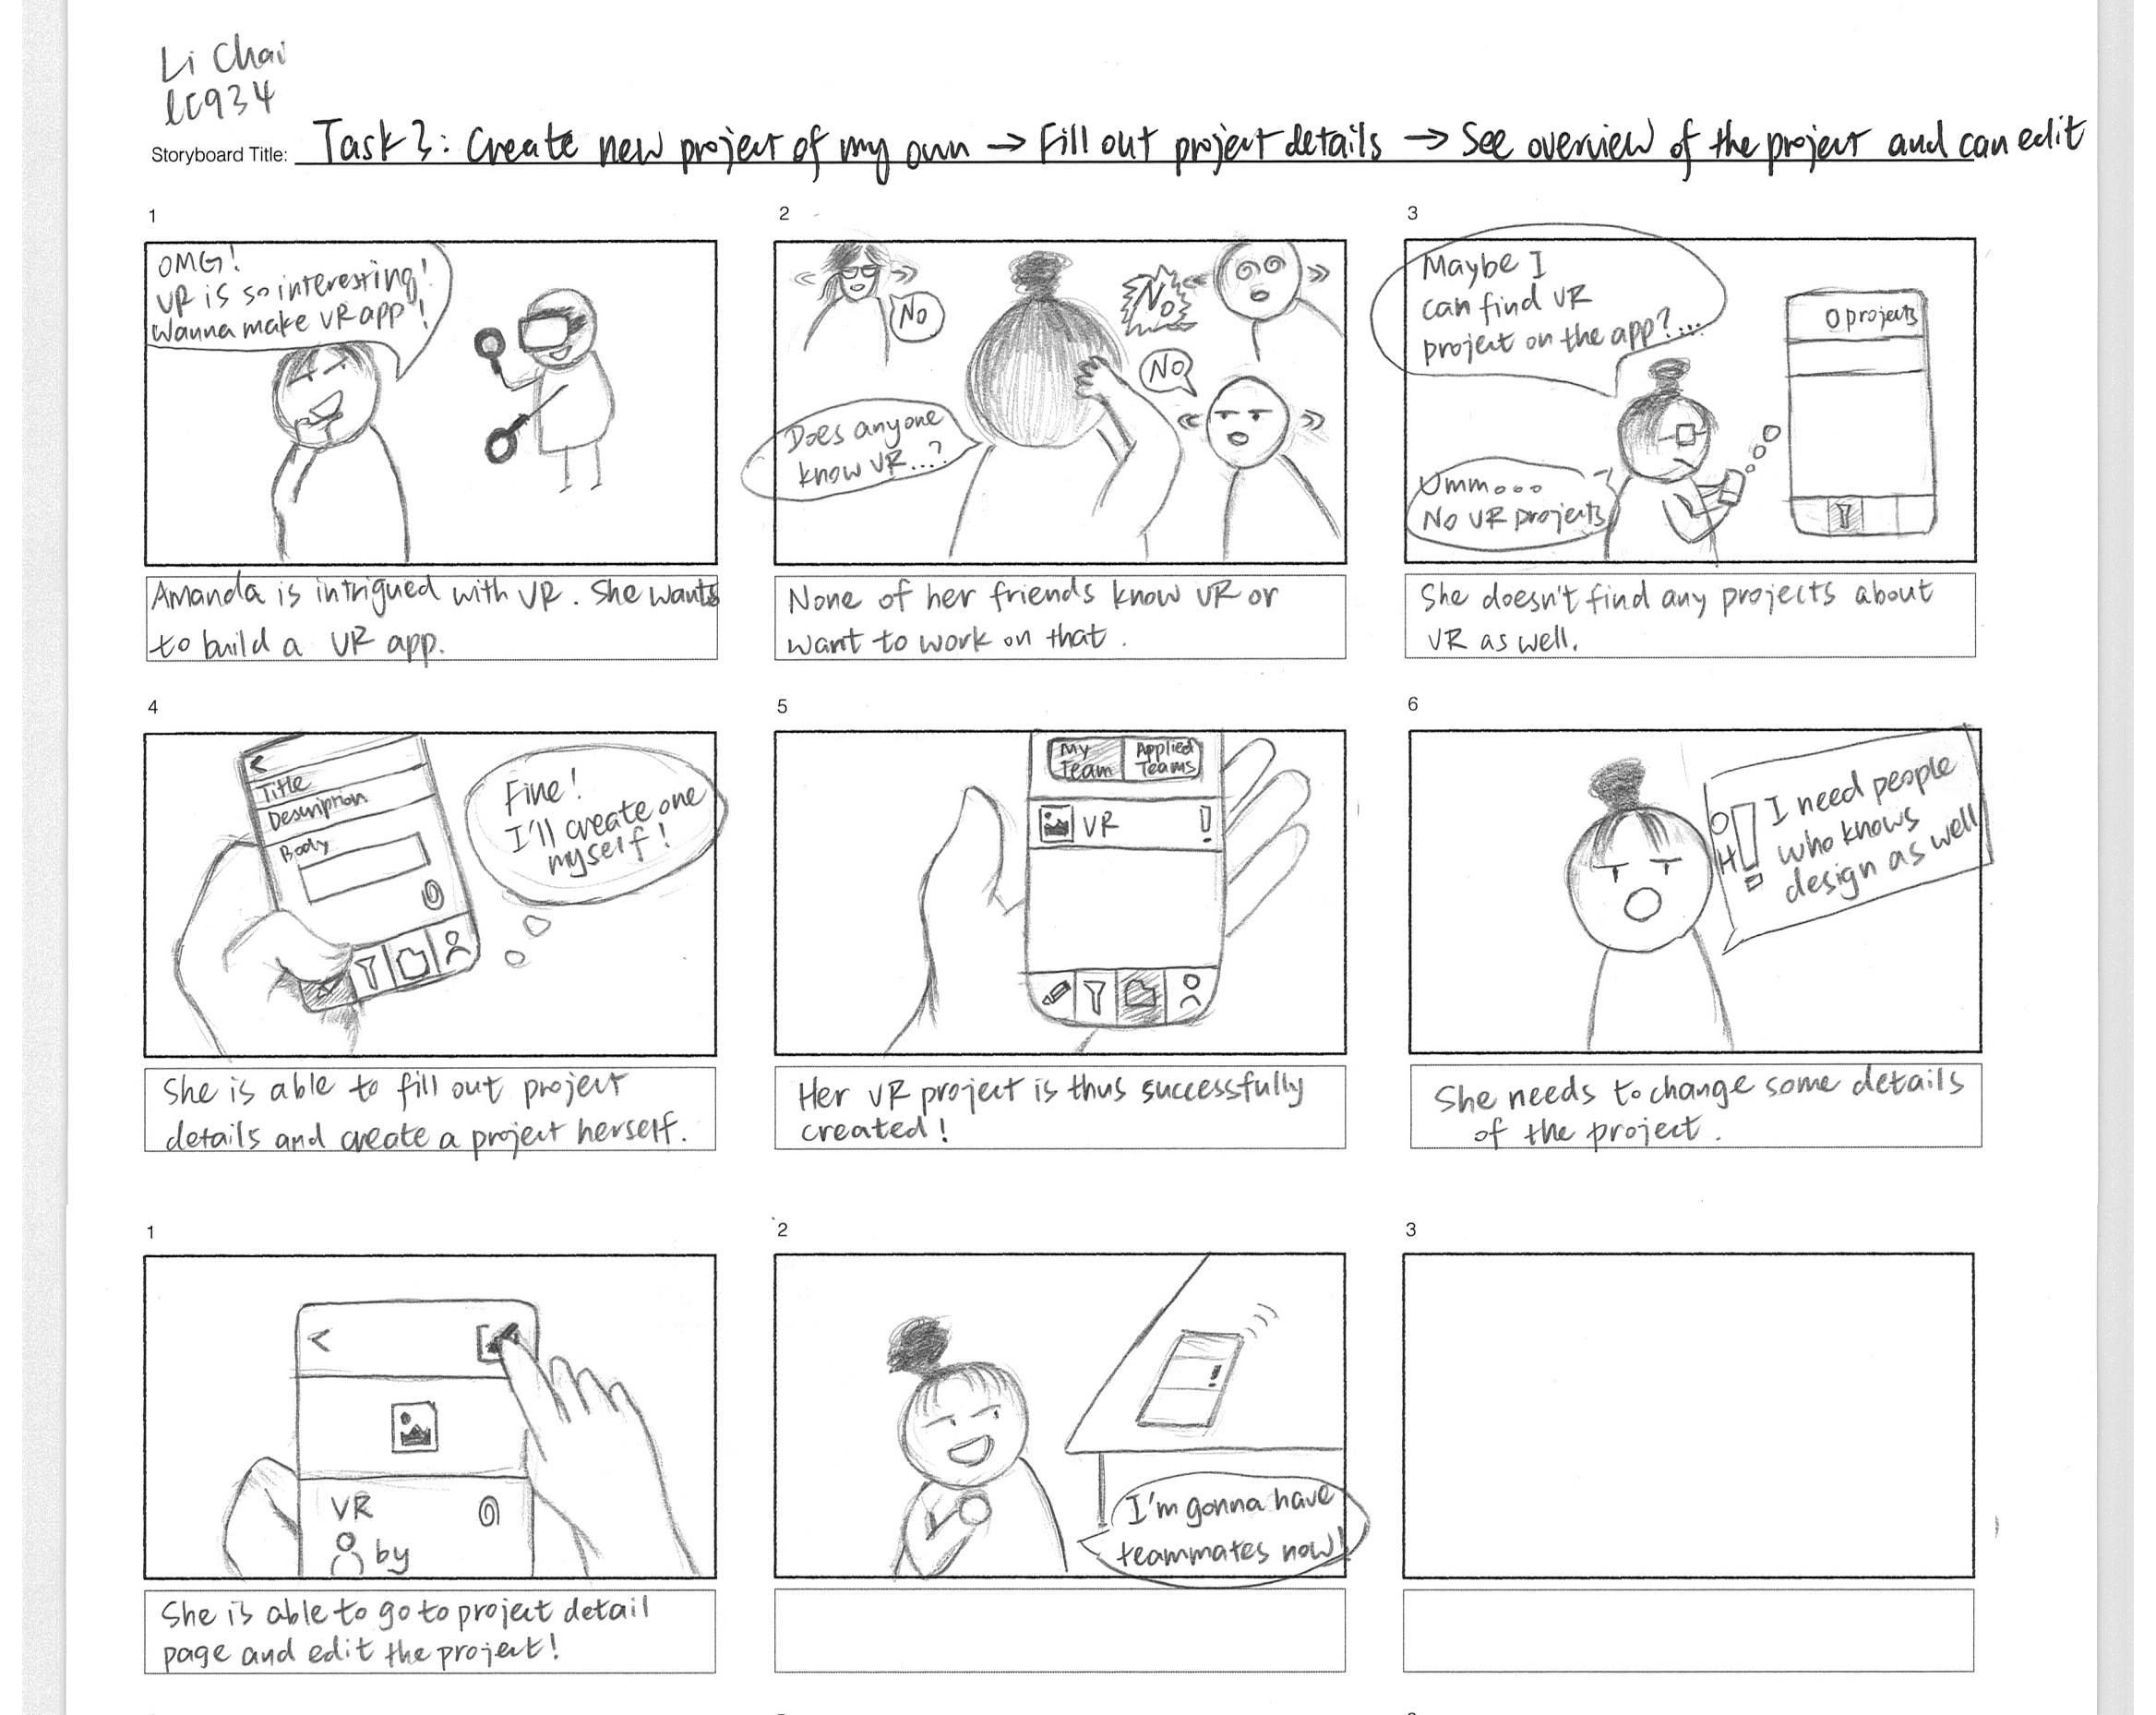 Li Chai
lc934
Storyboard Title: Task 3: Create new project of my own → Fill out project details → See overview of the project and can edit
1
OMG!
VR is so interesting!
Wanna make VR app!
Amanda is intrigued with VR. She wants
to build a VR app.
2
No
No
No
Does anyone
know VR...?
None of her friends know VR or
want to work on that.
3
Maybe I
can find VR
project on the app?...
0 projects
Umm...
No VR projects
She doesn't find any projects about
VR as well.
4
<
Title
Description
Body
Fine!
I'll create one
myself!
She is able to fill out project
details and create a project herself.
5
My Applied
Team Teams
VR !
Her VR project is thus successfully
created!
6
OH!
I need people
who knows
design as well
She needs to change some details
of the project.
1
<
VR
by
She is able to go to project detail
page and edit the project!
2
!
I'm gonna have
teammates now!
3